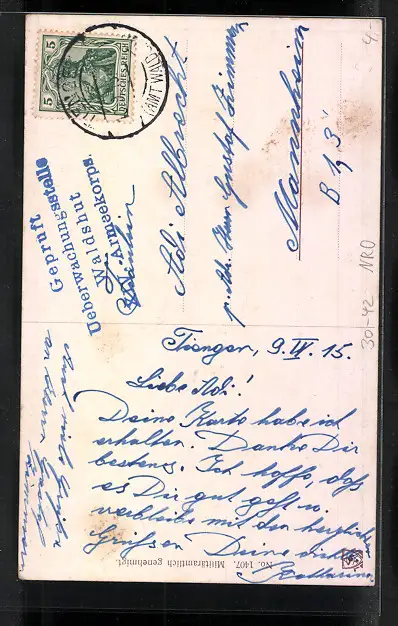 5
5
DEUTSCHES REICH
Geprüft
Ueberwachungsstelle
Waldshut
Armeekorps.
Fräulein
Adi Albrecht
p. Adr. Herrn Gustav Zimmermann
Mannheim
B 1, 3
4.-
30-42 NRO
Tiengen, 9. IV. 15.
Liebe Adi!
Deine Karte habe ich
erhalten. Danke Dir
bestens. Ich hoffe, daß
es Dir gut geht u.
verbleibe mit den herzlichen
Grüßen Deine
Katharina
Auch viele Grüße
an Herrn Gustav
Zimmermann
No. 1407. Militäramtlich genehmigt.